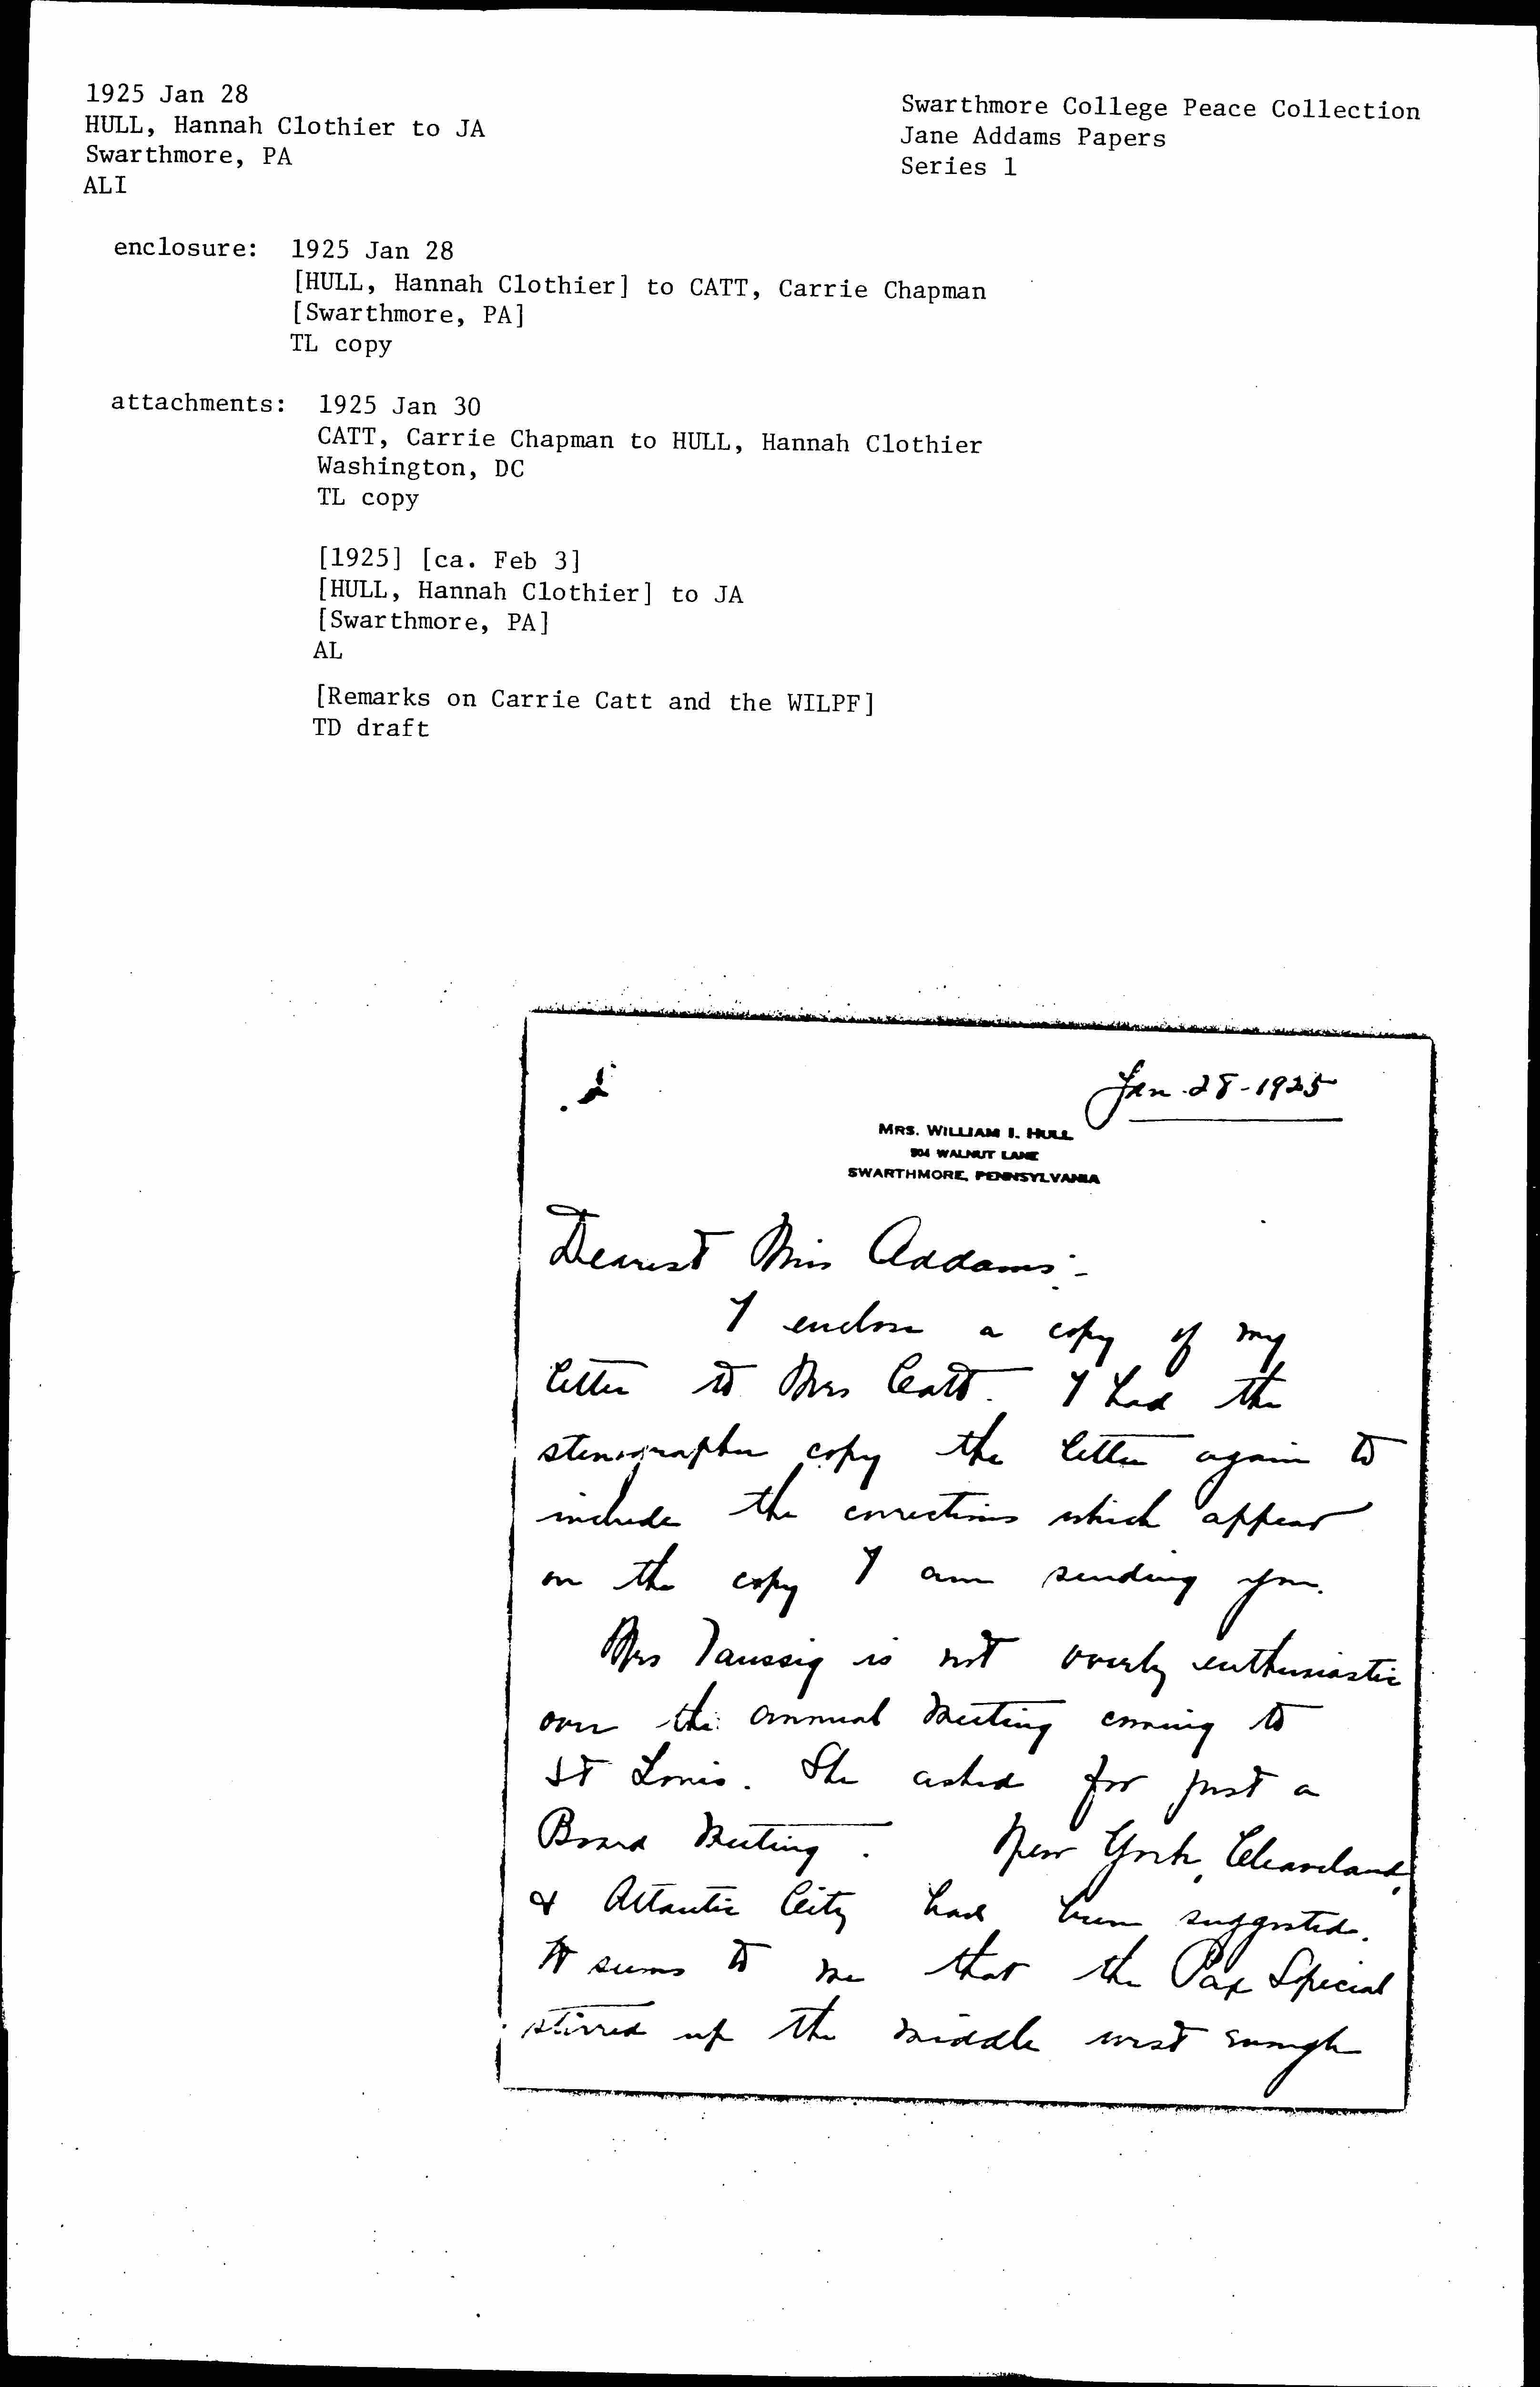 1925 Jan 28
HULL, Hannah Clothier to JA
Swarthmore, PA
ALI
Swarthmore College Peace Collection
Jane Addams Papers
Series 1
enclosure: 1925 Jan 28
[HULL, Hannah Clothier] to CATT, Carrie Chapman
[Swarthmore, PA]
TL copy
attachments: 1925 Jan 30
CATT, Carrie Chapman to HULL, Hannah Clothier
Washington, DC
TL copy
[1925] [ca. Feb 3]
[HULL, Hannah Clothier] to JA
[Swarthmore, PA]
AL
[Remarks on Carrie Catt and the WILPF]
TD draft
Jan 28-1925
MRS. WILLIAM I. HULL
504 WALNUT LANE
SWARTHMORE, PENNSYLVANIA
Dearest Miss Addams:-
I enclose a copy of my
letter to Mrs Catt. I had the
stenographer copy the letter again to
include the corrections which appear
on the copy I am sending you.
Mrs Taussig is not overly enthusiastic
over the annual meeting coming to
St Louis. She asked for just a
Board Meeting. New York, Cleaveland,
& Atlantic City had been suggested.
It seems to me that the Pax Special
stirred up the middle west enough